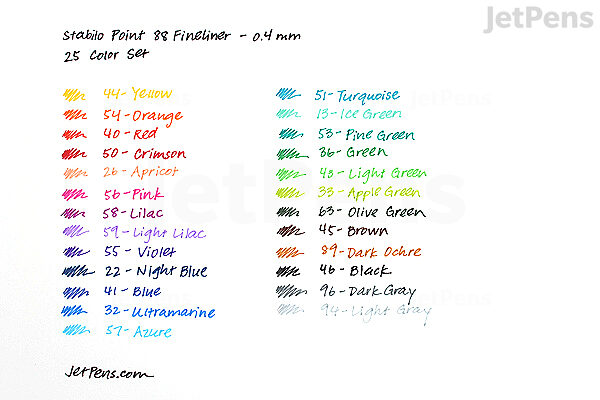 JetPens
Stabilo Point 88 Fineliner - 0.4 mm
25 Color Set
44 - Yellow
54 - Orange
40 - Red
50 - Crimson
26 - Apricot
56 - Pink
58 - Lilac
59 - Light Lilac
55 - Violet
22 - Night Blue
41 - Blue
32 - Ultramarine
57 - Azure
51 - Turquoise
13 - Ice Green
53 - Pine Green
36 - Green
43 - Light Green
33 - Apple Green
63 - Olive Green
45 - Brown
89 - Dark Ochre
46 - Black
96 - Dark Gray
94 - Light Gray
JetPens.com
JetPens
JetPens
JetPens
JetPens